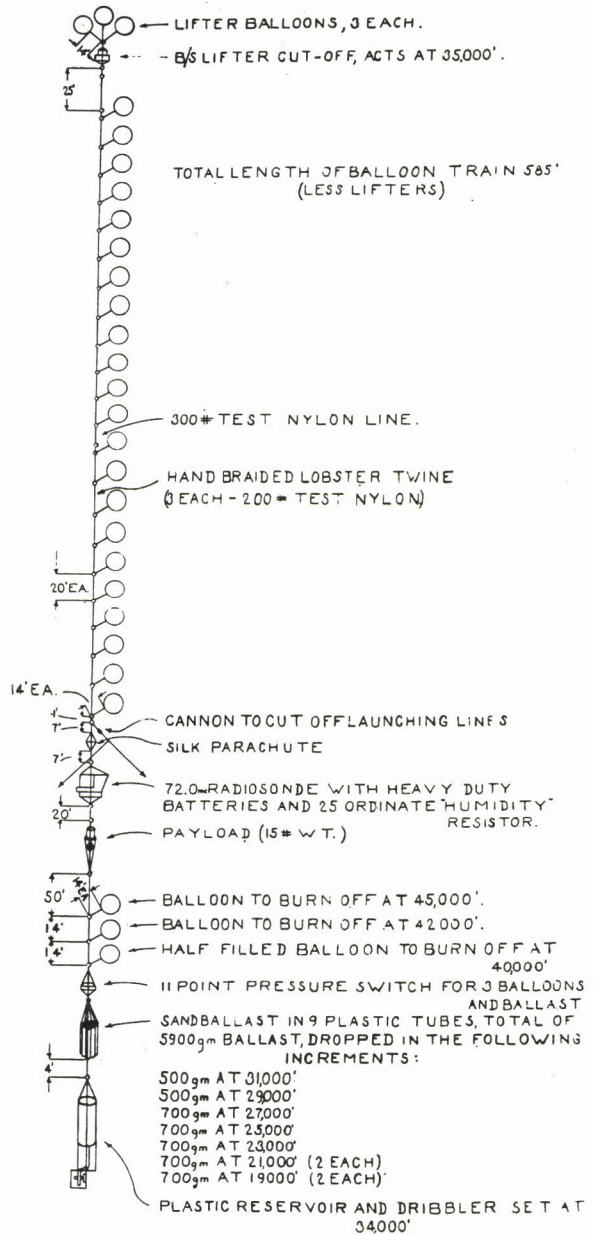 LIFTER BALLOONS, 3 EACH.
B/S LIFTER CUT-OFF, ACTS AT 35,000'.
25'
TOTAL LENGTH OF BALLOON TRAIN 585'
(LESS LIFTERS)
300# TEST NYLON LINE.
HAND BRAIDED LOBSTER TWINE
(3 EACH - 200# TEST NYLON)
20' EA.
14' EA.
1'
7'
CANNON TO CUT OFF LAUNCHING LINES
SILK PARACHUTE
7'
72.0 RADIOSONDE WITH HEAVY DUTY
BATTERIES AND 25 ORDINATE "HUMIDITY"
RESISTOR.
20'
PAYLOAD (15# WT.)
50'
BALLOON TO BURN OFF AT 45,000'.
14'
BALLOON TO BURN OFF AT 42000'.
14'
HALF FILLED BALLOON TO BURN OFF AT
40,000'
11 POINT PRESSURE SWITCH FOR 3 BALLOONS
AND BALLAST
SAND BALLAST IN 9 PLASTIC TUBES, TOTAL OF
5900gm BALLAST, DROPPED IN THE FOLLOWING
INCREMENTS:
4'
500gm AT 31,000'
500gm AT 29,000'
700gm AT 27,000'
700gm AT 25,000'
700gm AT 23,000'
700gm AT 21,000' (2 EACH)
700gm AT 19000' (2 EACH)
PLASTIC RESERVOIR AND DRIBBLER SET AT
34,000'